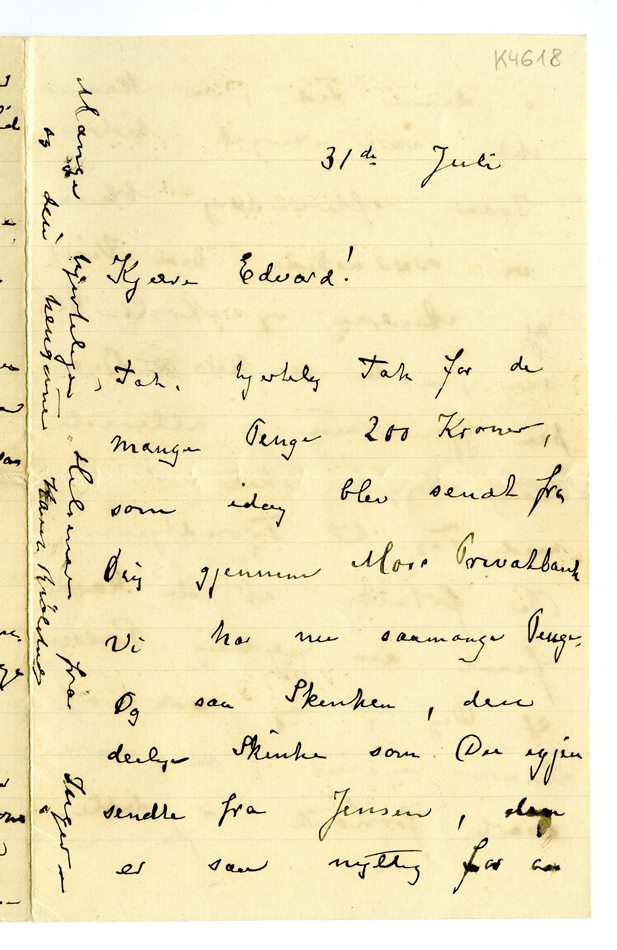 K4618
31te Juli
Kjære Edvard!
Tak, hjertelig Tak for de
mange Penge 200 Kroner,
som idag blev sendt fra
Dig gjennem Moss Privatbank
Vi har nu saamange Penge.
Og saa Skinken, den
deilige Skinke som Du igjen
sendte fra Jensen, den
er saa nyttig for os
Mange hjertelige Hilsener fra Inger
og din hengivne